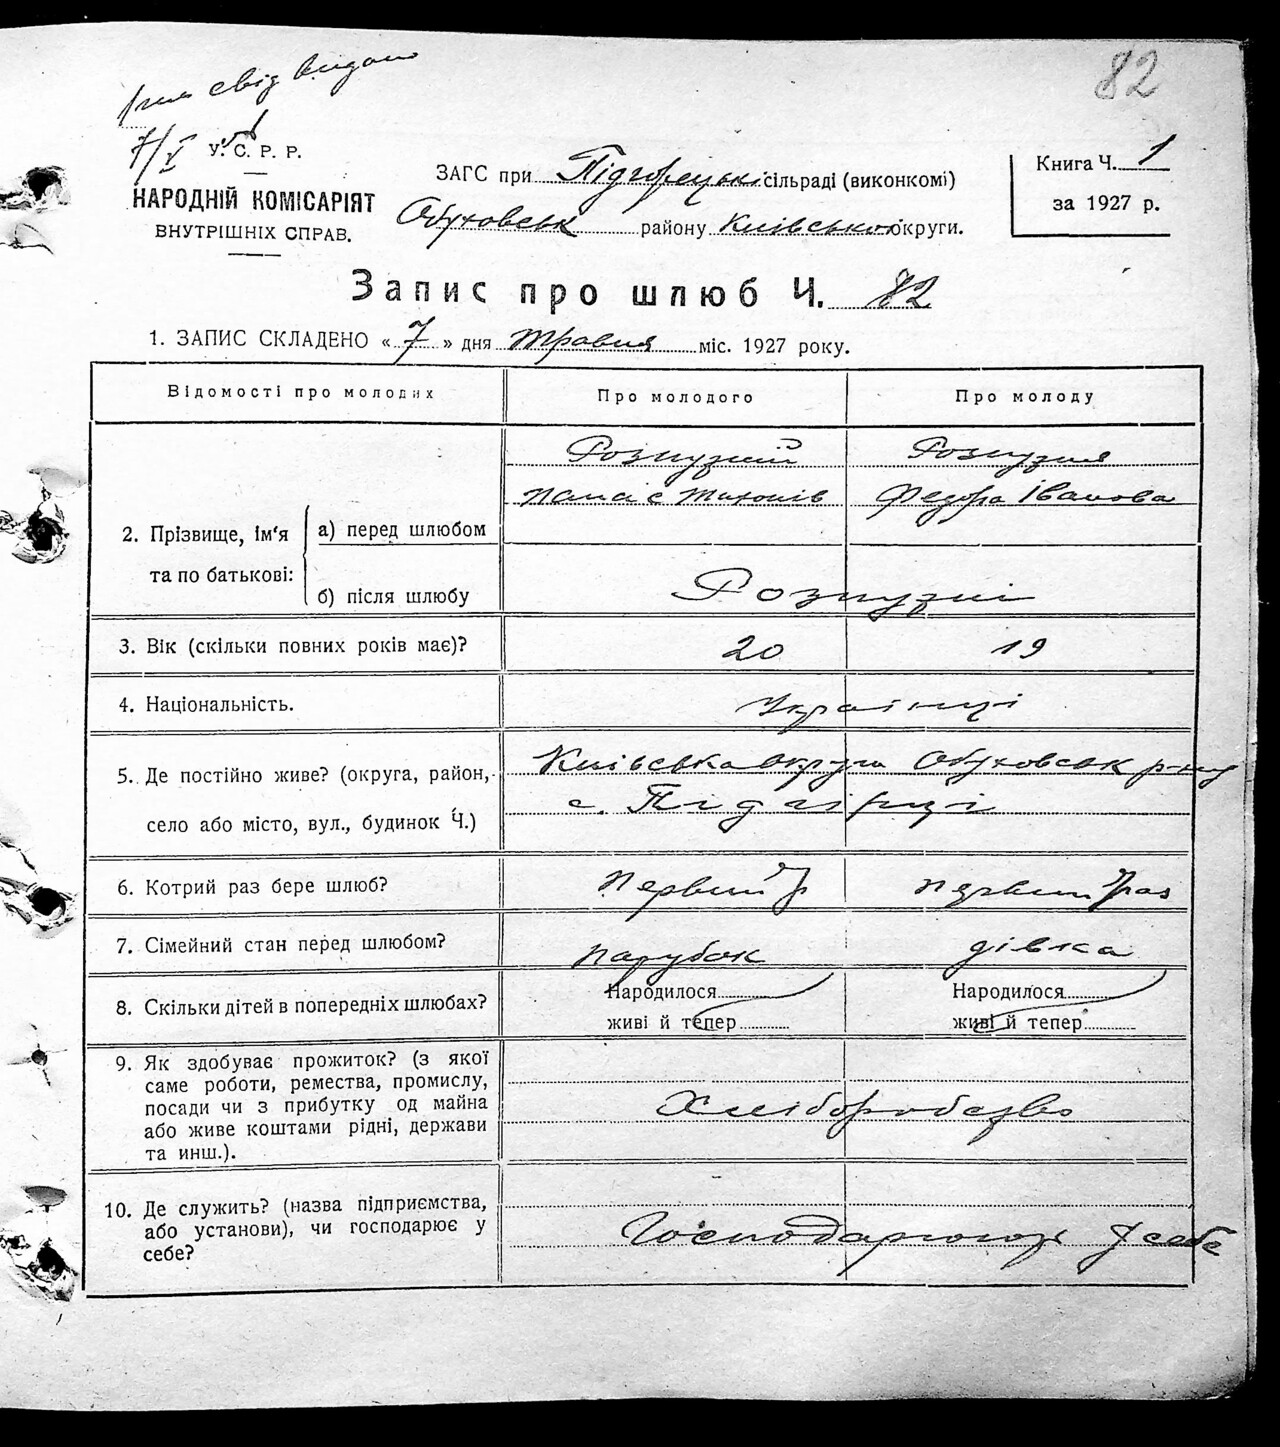 свід видано
82
7/V
У. С. Р. Р.
НАРОДНІЙ КОМІСАРІЯТ
ВНУТРІШНІХ СПРАВ.
ЗАГС при Підгорецькі сільраді (виконкомі)
Обуховськ району Київської округи.
Книга Ч. 1
за 1927 р.
Запис про шлюб Ч. 82
1. ЗАПИС СКЛАДЕНО «7» дня травня міс. 1927 року.
Відомості про молодих
Про молодого
Про молоду
2. Прізвище, ім‘я та по батькові:
а) перед шлюбом
Розпузний
Панас Тихонів
Розпузня
Федора Іванова
б) після шлюбу
Розпузні
3. Вік (скільки повних років має)?
20
19
4. Національність.
Українці
5. Де постійно живе? (округа, район,
село або місто, вул., будинок Ч.)
Київська округа Обуховськ р-ну
с. Підгірці
6. Котрий раз бере шлюб?
первий р
первий раз
7. Сімейний стан перед шлюбом?
парубок
дівка
8. Скільки дітей в попередніх шлюбах?
Народилося
живі й тепер
Народилося
живі й тепер
9. Як здобуває прожиток? (з якої
саме роботи, ремества, промислу,
посади чи з прибутку од майна
або живе коштами рідні, держави
та инш.).
Хліборобство
10. Де служить? (назва підприємства,
або установи), чи господарює у
себе?
Господарюють у себе